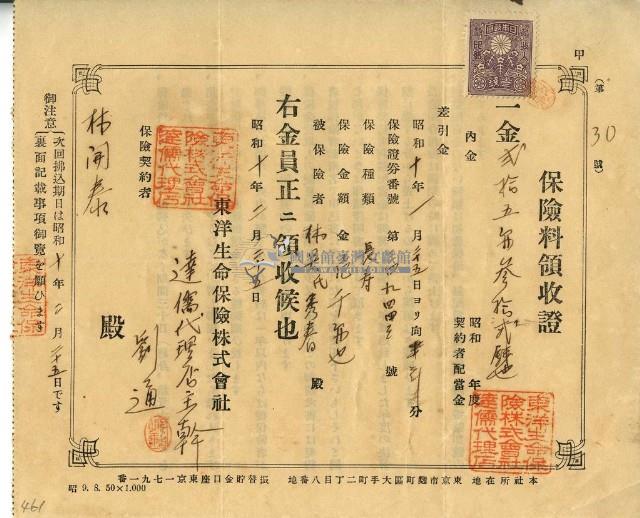 甲
第 30 號
保險料領收證
一金貳拾五円參拾弍錢
內金
昭和 年度
契約者配當金
差引金
昭和十年一月二五日ヨリ向 分
保險證券番號 第 九四四 號
保險種類 長壽
保險金額 金 千円也
被保險者 林 氏秀春 殿
右金員正ニ領收候也
昭和十年二月二五日
東洋生命保險株式會社
達儒代理店主幹
劉通
東洋生命保險株式會社達儒代理店
保險契約者
林開泰 殿
御注意
次回拂込期日は昭和十年二月二五日です
裏面記載事項御覽を願ひます
東洋生命保
東洋生命保險株式會社達儒代理店
本社所在地 東京市麴町區大手町二丁目八番地 振替貯金口座東京一七九一番
昭 9.8.50×1,000
461
國史館臺灣文獻館